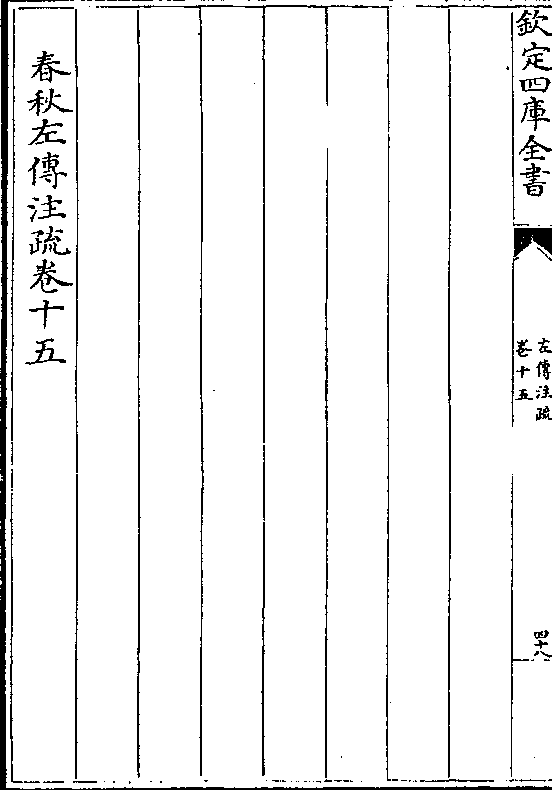 欽定四庫全書
左傳注疏
卷十五
四十八
春秋左傳注疏卷十五